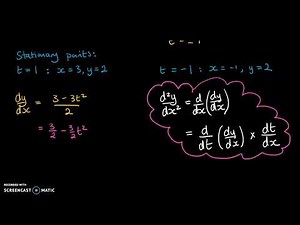 t = -1
Stationary points:
t=1 : x=3, y=2
t=-1 : x=-1, y=2
dy/dx = (3-3t²)/2
= 3/2 - 3/2 t²
d²y/dx² = d/dx (dy/dx)
= d/dt (dy/dx) × dt/dx
RECORDED WITH
SCREENCAST MATIC